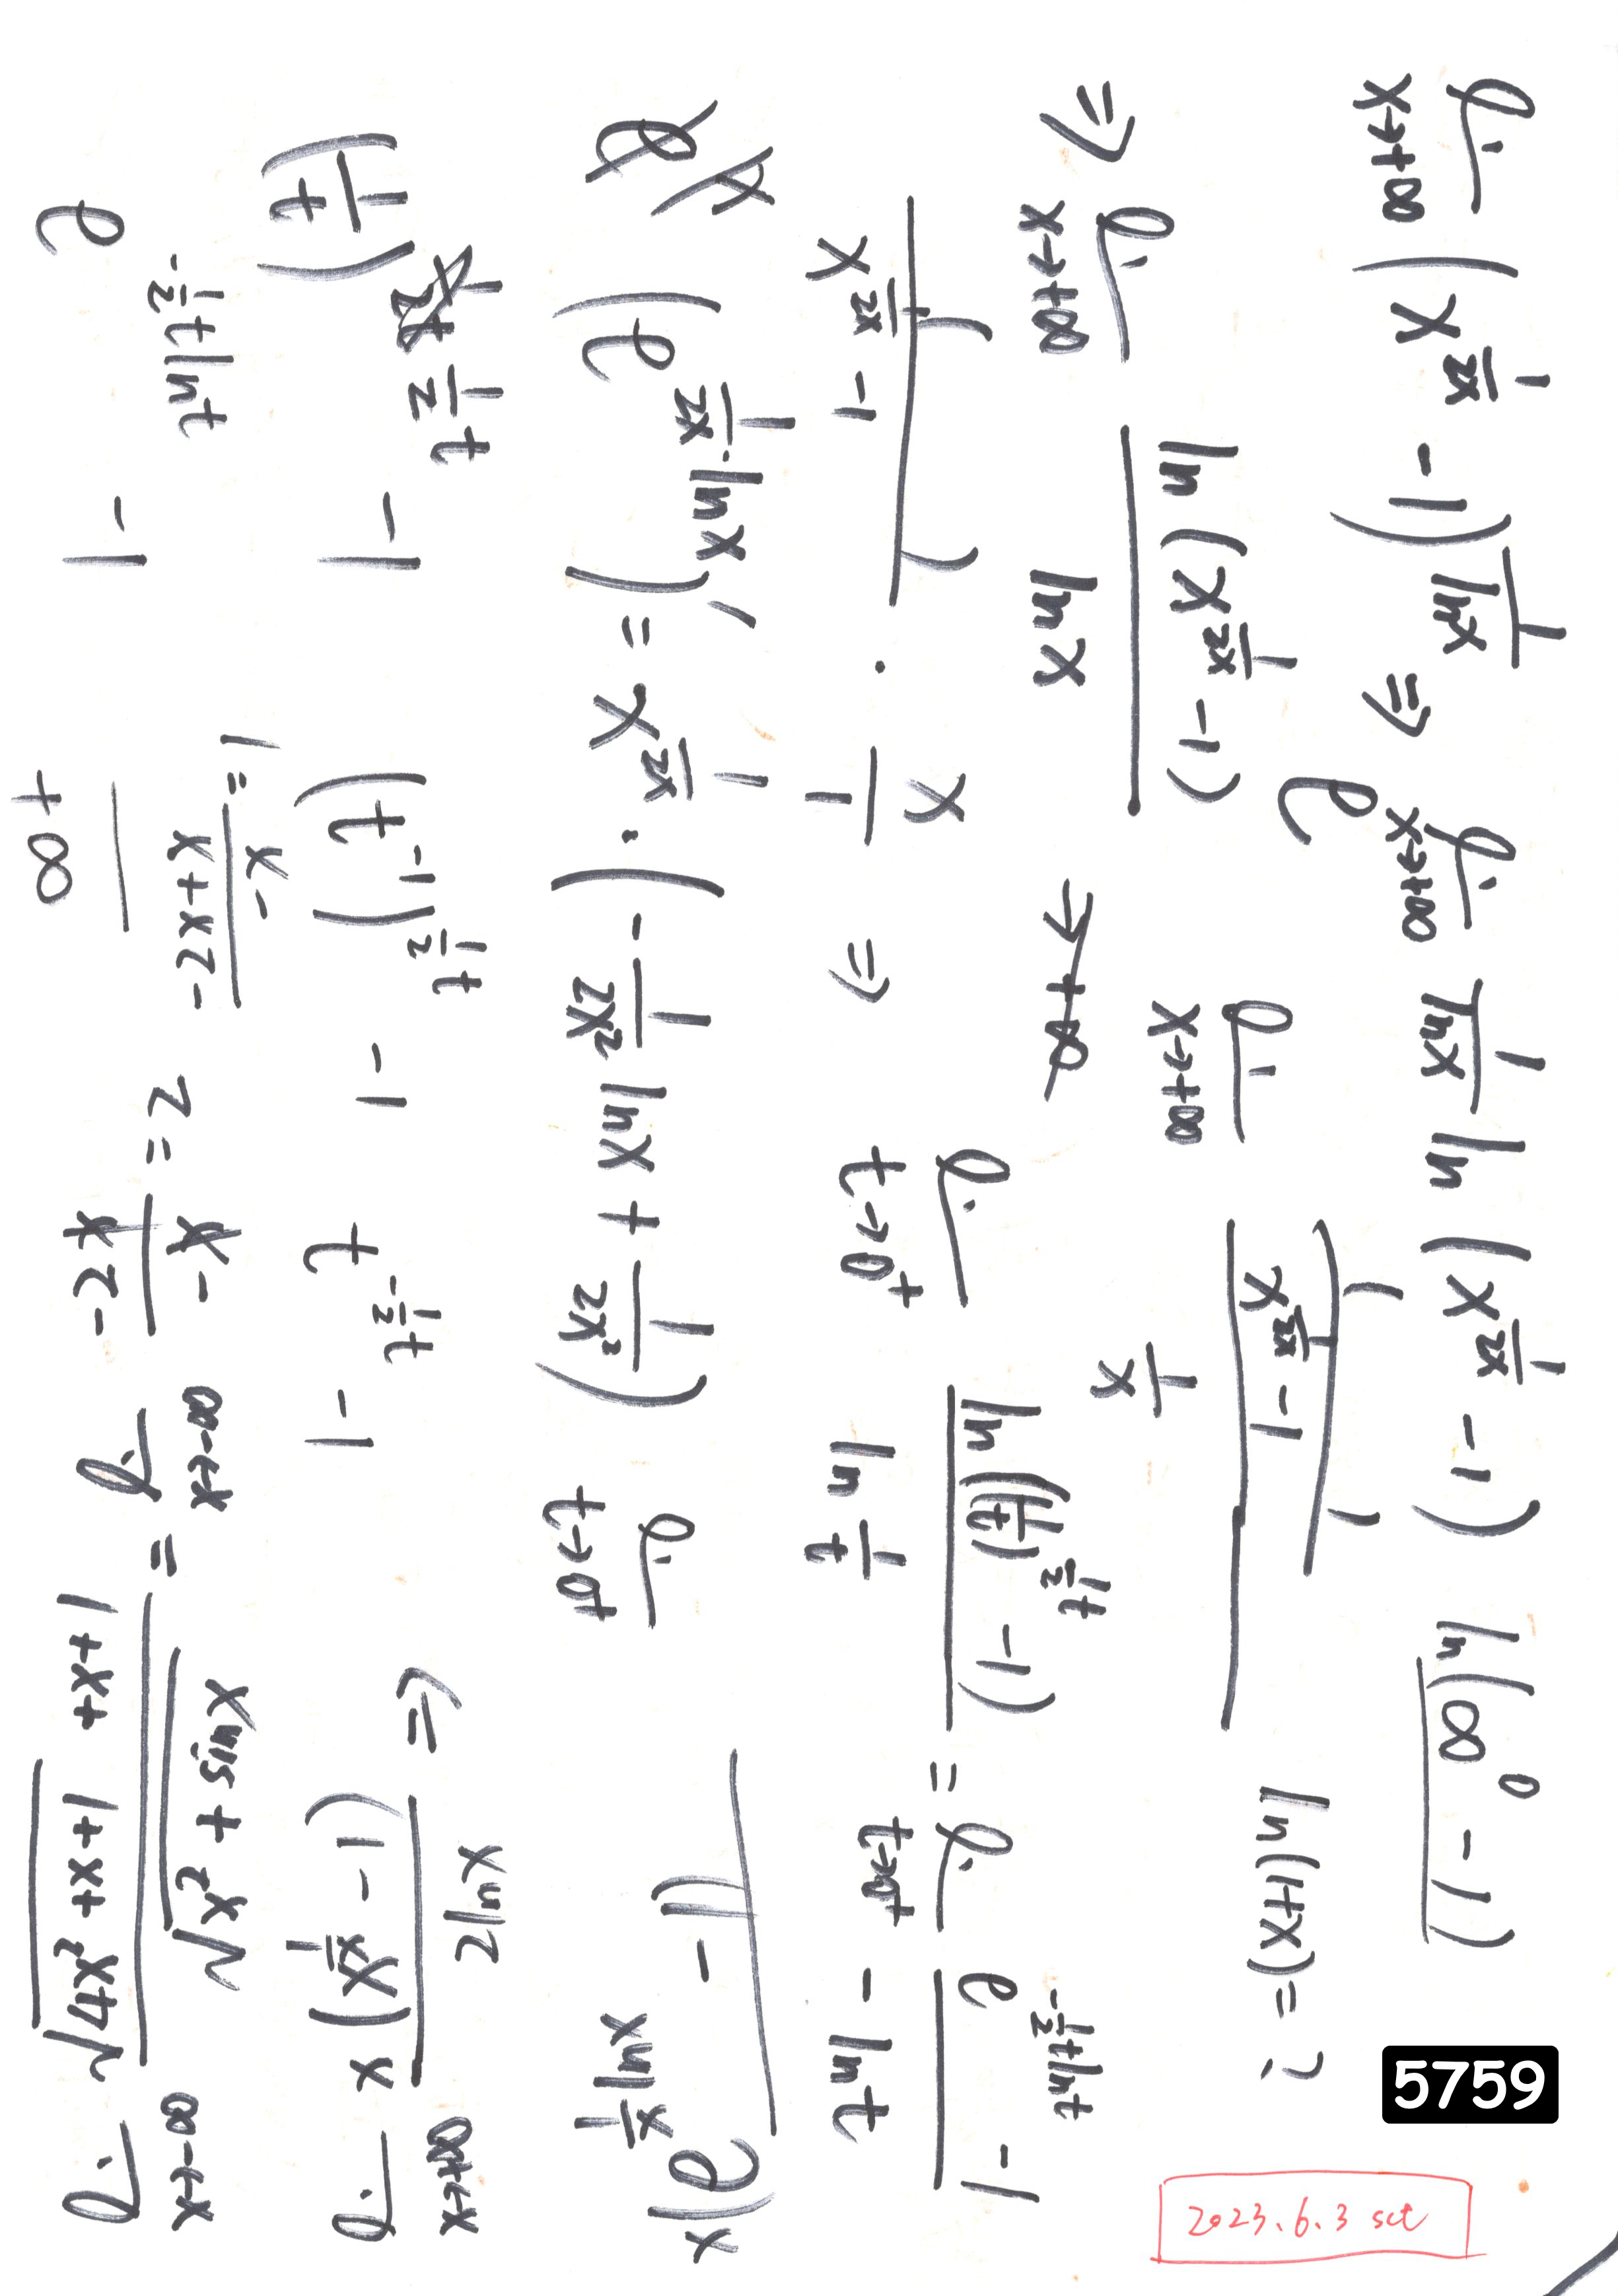 lim x→+∞ (x^{1/2x} - 1)^{1/lnx} ⇒ e^{lim x→+∞ 1/lnx ln(x^{1/2x} - 1)} ln(∞^0 - 1)
⇒ lim x→+∞ ln(x^{1/2x} - 1) / lnx lim x→+∞ (x^{1/2x} - 1) / 1/x ln(1+x) = ?
→ +∞
x^{1/2x} - 1 · x/1 ⇒ lim t→0+ ln((1/t)^{1/2 t} - 1) / ln 1/t = lim t→0+ e^{-1/2 t ln t} - 1 / - ln t
(e^{1/2x · lnx})' = x^{1/2x} · (- 1/2x² lnx + 1/2x²) lim t→0+
(1/t)^{1/2 t} - 1 (t^{-1})^{1/2 t} - 1 t^{-1/2 t} - 1
e^{-1/2 t ln t} - 1
+∞
lim x→-∞ √(4x²+x+1) +x+1 / √(x²+sinx) = lim x→-∞ -2x / -x = 2
-2x+x / -x = 1
lim x→+∞ x(x^{1/x} - 1) / 2lnx ⇒
x(e^{1/x lnx} - 1
5759
2023.6.3 sct